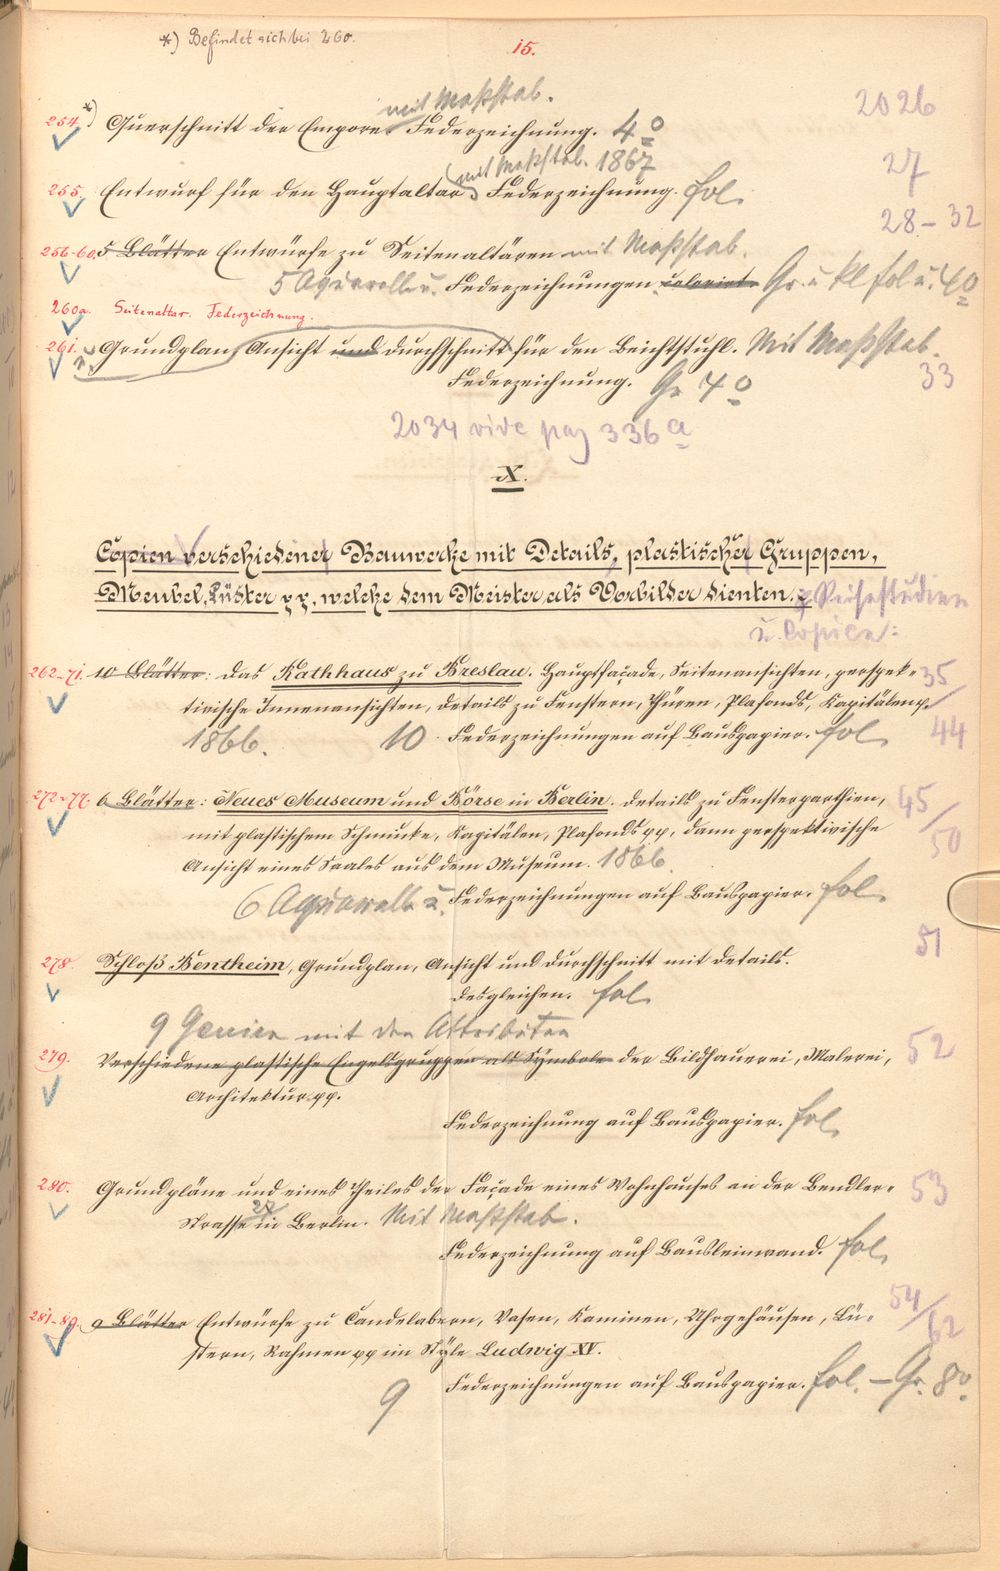 *) Befindet sich bei 260.
15.
mit Maßstab.
2026
254. *) Querschnitt der Empore. Federzeichnung. 4o
mit Maßstab. 1867
27
255. Entwurf für den Hauptaltar, Federzeichnung. fol
28-32
256-60. 5 Blätter Entwürfe zu Seitenaltären mit Maßstab.
5 Aquarelle u. Federzeichnungen colorirt. Gr. u kl fol u. 4o
260a. Seitenaltar. Federzeichnung.
261. Grundplan, Ansicht und Durchschnitt für den Beichtstuhl. Mit Maßstab.
33
Federzeichnung. Gr 4o
2034 vide pag 336 a
X.
Copien verschiedener Bauwerke mit Details, plastischer Gruppen,
Meubel, Lüster pp, welche dem Meister als Vorbilder dienten. Reisestudien
u. Copien:
262-71. 10 Blätter: Das Rathhaus zu Breslau. Hauptfaçade, Seitenansichten, perspek- 35
tivische Innenansichten, Details zu Fenstern, Thüren, Plafonds, Kapitälen p.
1866. 10 Federzeichnungen auf Bauspapier. fol 44
272-77. 6 Blätter: Neues Museum und Börse in Berlin. Details zu Fensterparthien, 45
mit plastischem Schmucke, Kapitälen, Plafonds pp, dann perspektivische 50
Ansicht eines Saales aus dem Museum. 1866.
6 Aquarelle u. Federzeichnungen auf Bauspapier. fol
51
278. Schloß Bentheim, Grundplan, Ansicht und Durchschnitt mit Details.
Desgleichen. fol
9 Genien mit den Attributen
279. Verschiedene plastische Engelsgruppen als Symbole der Bildhauerei, Malerei, 52
Architektur pp.
Federzeichnung auf Bauspapier. fol
280. Grundpläne und eines Theiles der Façade eines Wohnhauses an der Bendler- 53
Strasse in Berlin. Mit Maßstab.
Federzeichnung auf Bausleinwand. fol
54
281-89. 9 Blätter Entwürfe zu Candelabern, Vasen, Kaminen, Uhrgehäusen, Lü- 62
stern, Rahmen pp im Style Ludwig XV.
9 Federzeichnungen auf Bauspapier. fol. - Gr. 8o